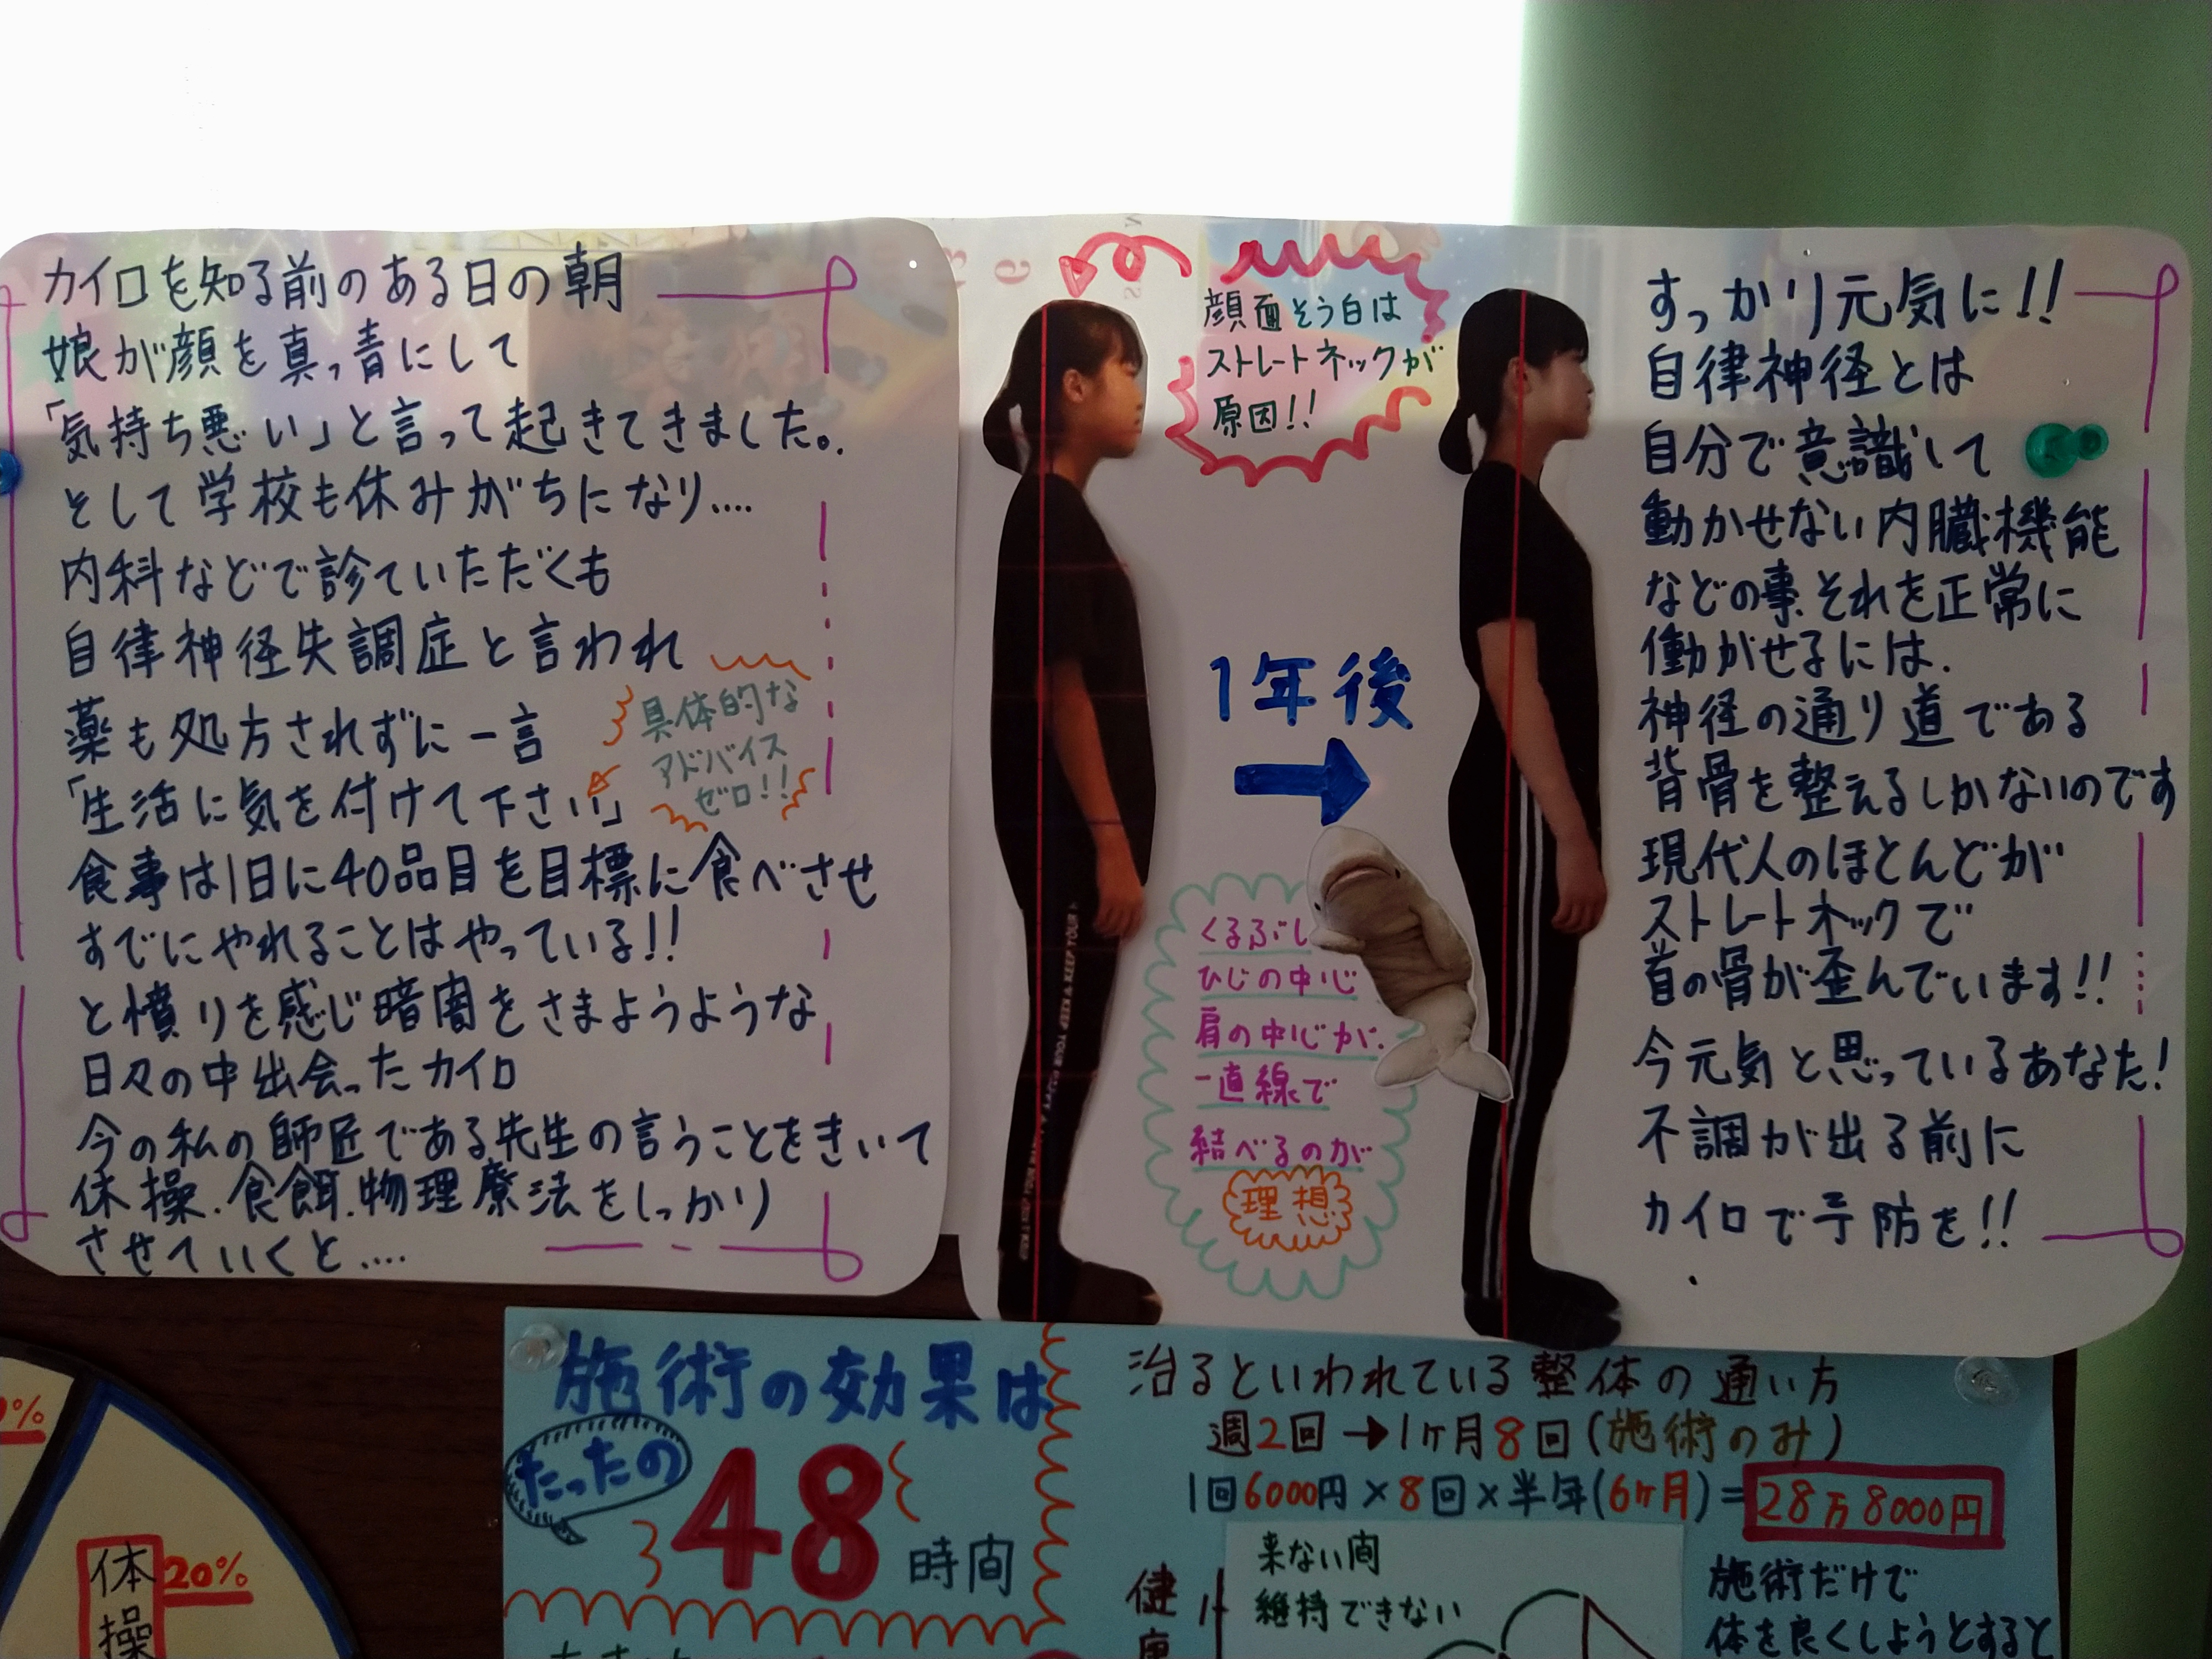 カイロを知る前のある日の朝
娘が顔を真っ青にして
「気持ち悪い」と言って起きてきました。
そして学校も休みがちになり....
内科などで診ていただくも
自律神経失調症と言われ
薬も処方されずに一言
「生活に気を付けて下さい」
具体的な
アドバイス
ゼロ!!
食事は1日に40品目を目標に食べさせ
すでにやれることはやっている!!
と憤りを感じ暗闇をさまようような
日々の中出会ったカイロ
今の私の師匠である先生の言うことをきいて
体操.食餌.物理療法をしっかり
させていくと....
顔面そう白は
ストレートネックが
原因!!
1年後
くるぶし
ひじの中心
肩の中心が.
一直線で
結べるのが
理想
すっかり元気に!!
自律神経とは
自分で意識して
動かせない内臓機能
などの事.それを正常に
働かせるには.
神経の通り道である
背骨を整えるしかないのです
現代人のほとんどが
ストレートネックで
首の骨が歪んでいます!!
今元気と思っているあなた!
不調が出る前に
カイロで予防を!!
施術の効果は
たったの
48
時間
治るといわれている整体の通い方
週2回→1ヶ月8回(施術のみ)
1回6000円×8回×半年(6ヶ月)=28万8000円
来ない間
維持できない
健
施術だけで
体を良くしようとすると
体操
20%